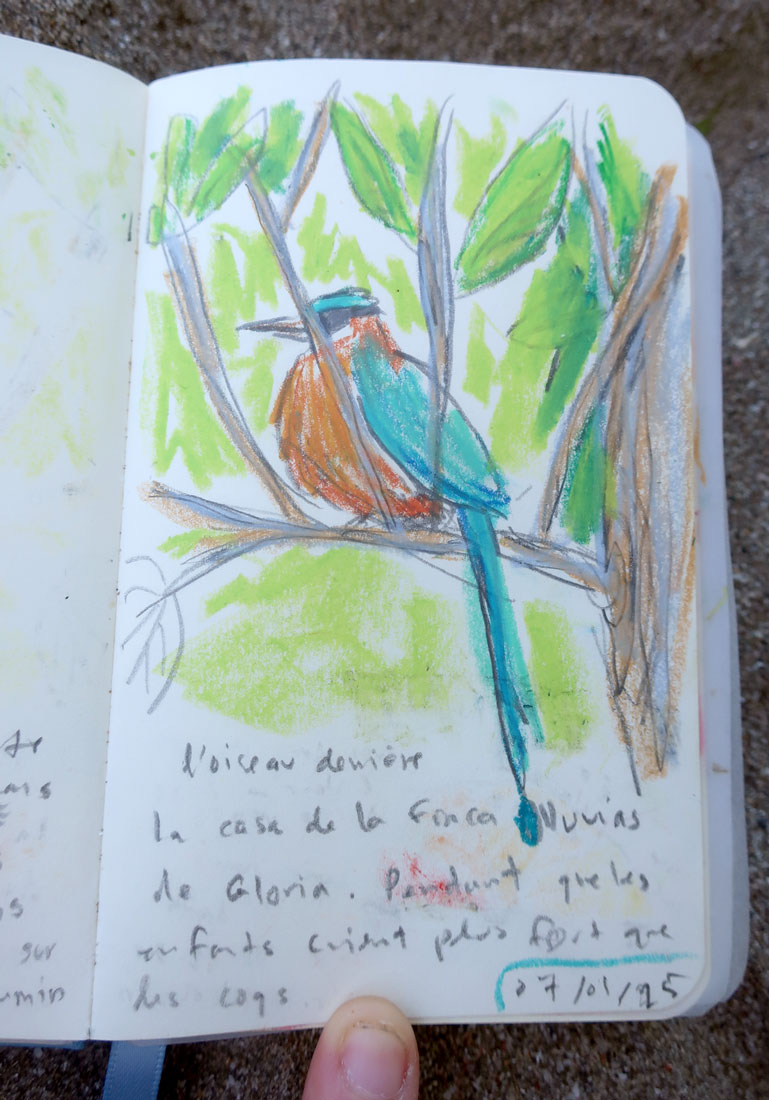 sur
l'oiseau derrière
la casa de la Finca
de Gloria. Pendant que les
enfants crient plus fort que
les coqs
07/01/25